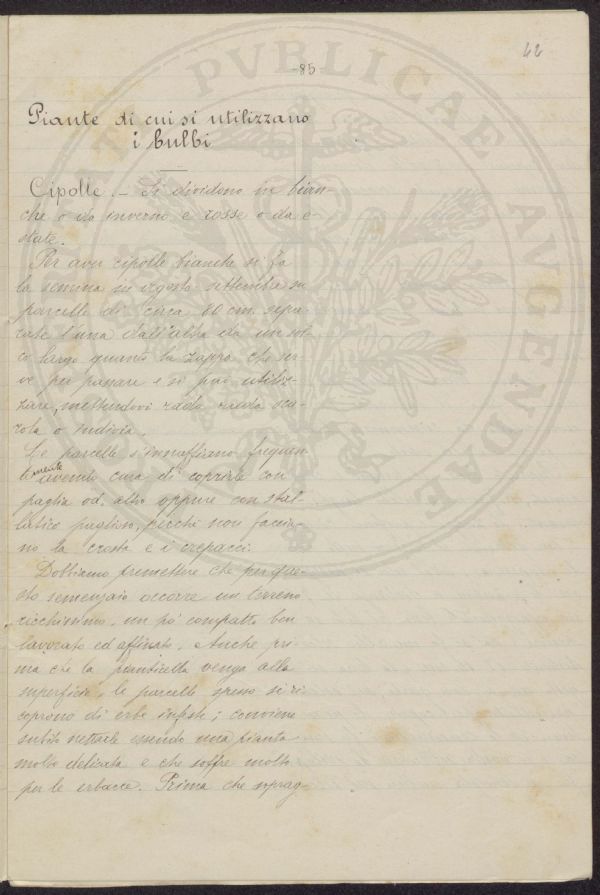 42
85
PVBLICAE
AVGENDAE
Piante di cui si utilizzano
i bulbi
Cipolle. – Si dividono in bian-
che o da inverno e rosse o da e-
state.
Per aver cipolle bianche si fa
la semina in agosto settembre in
parcelle di circa 60 cm. sepa-
rate l'una dall'altra da un sol-
co largo quanto la zappa che ser-
ve per passare e si può utiliz-
zare, mettendovi rada rada sca-
rola o indivia.
Le parcelle s'innaffiano frequen-
temente avendo cura di coprirle con
paglia od altro oppure con stal-
latico paglioso, perchè non faccia-
no la crosta e i crepacci.
Dobbiamo premettere che per que-
sto semenzaio occorre un terreno
ricchissimo, un pò compatto ben
lavorato ed affinato. Anche pri-
ma che la pianticella venga alla
superficie, le parcelle spesso si ri-
coprono di erbe infeste; conviene
subito nettarle essendo una pianta
molto delicata e che soffre molto
per le erbacce. Prima che soprag-